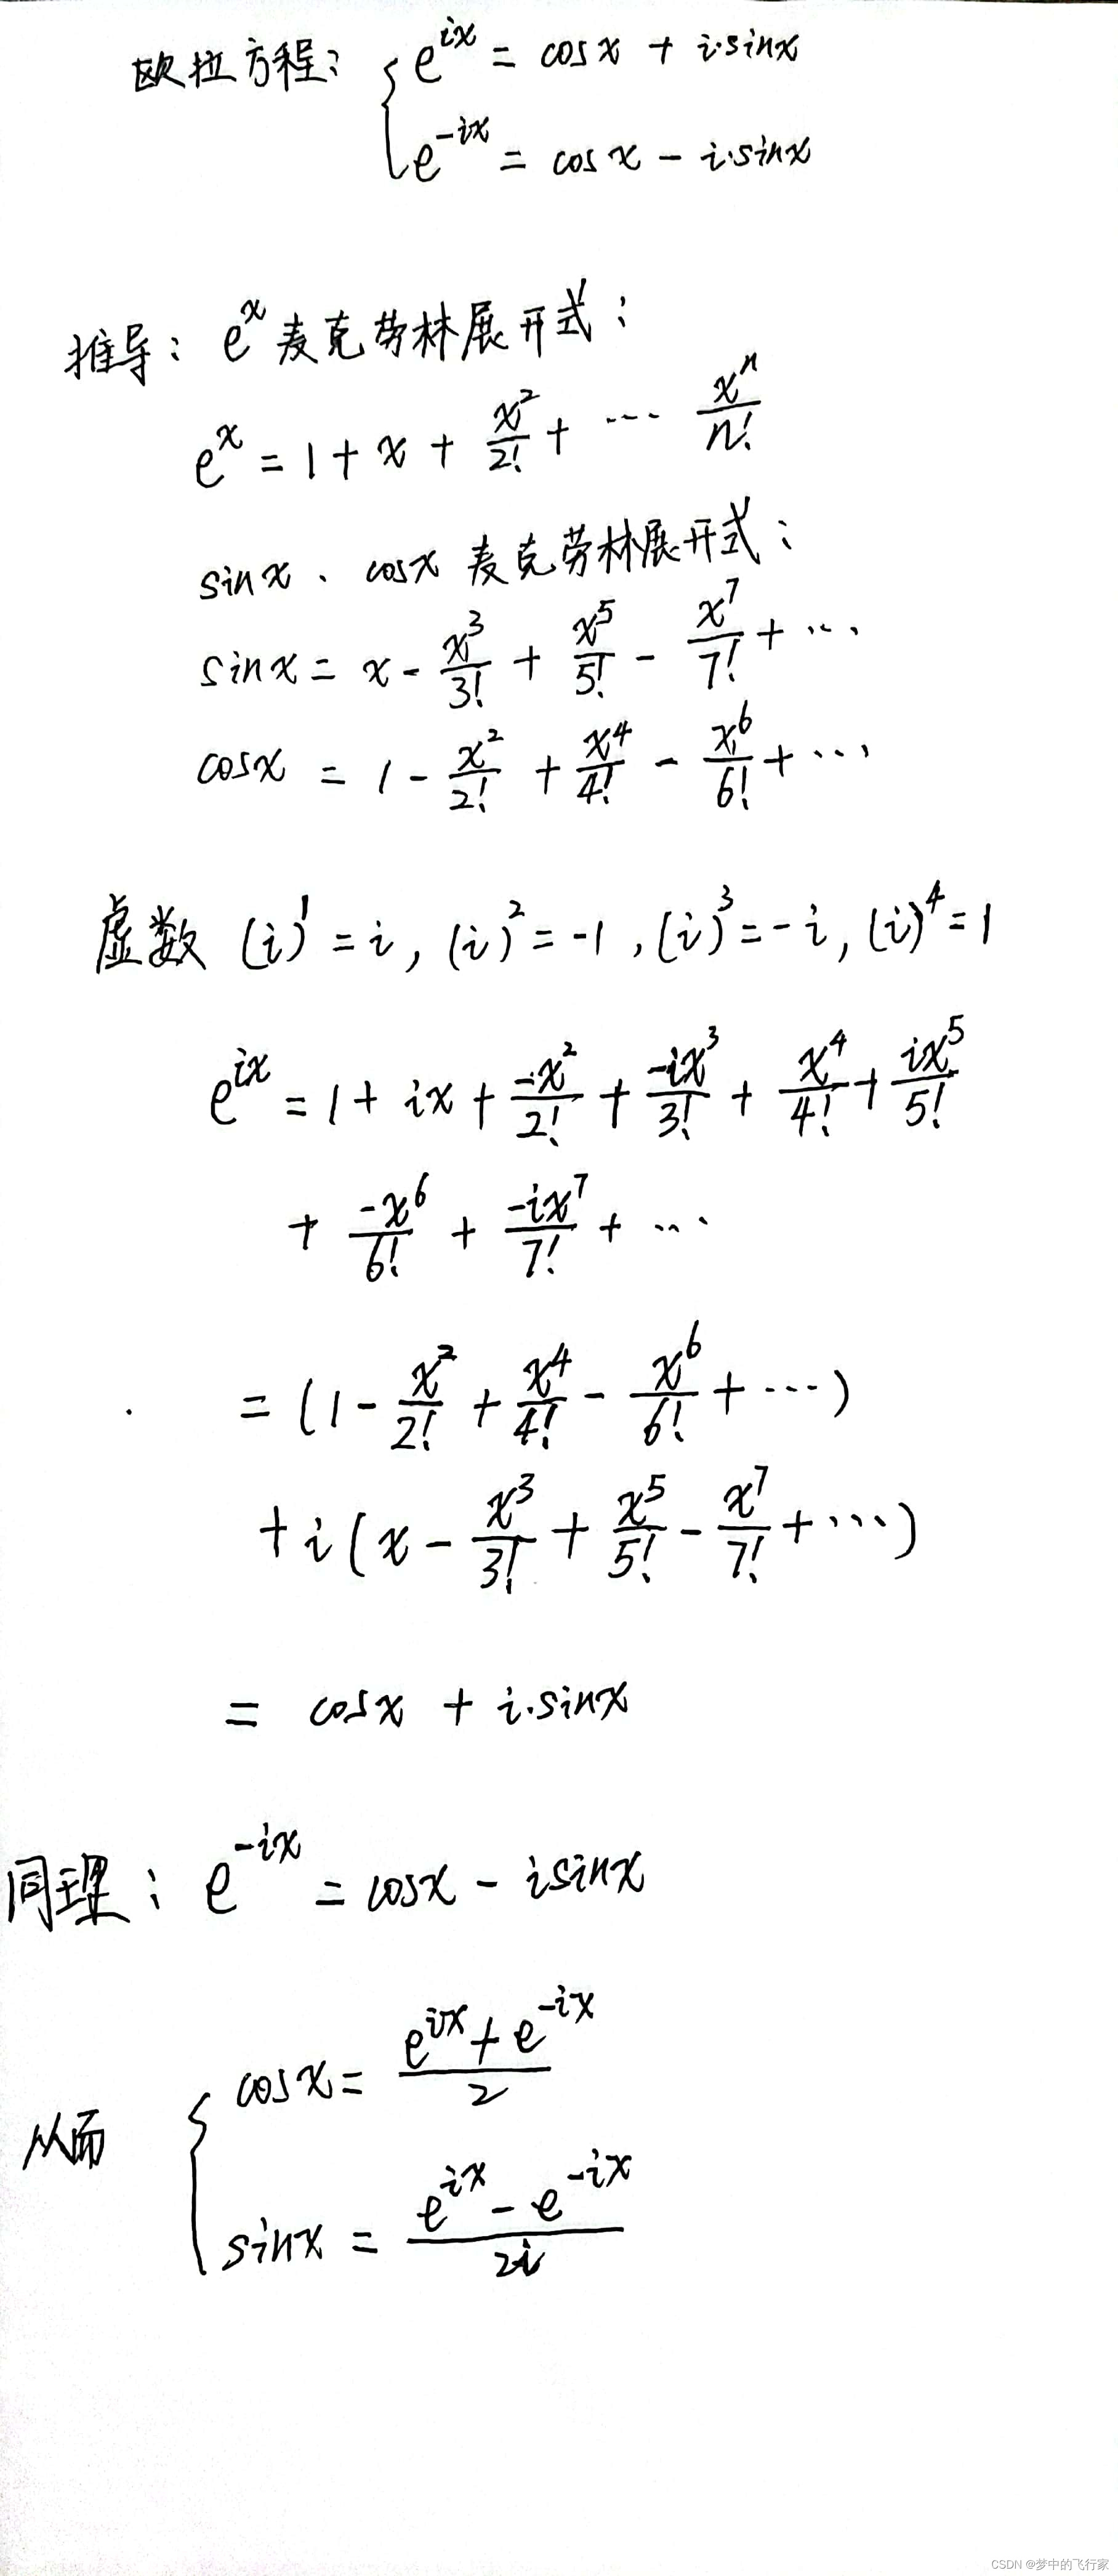 欧拉方程: { e^{ix} = cosx + i·sinx
e^{-ix} = cosx - i·sinx
推导: e^x 麦克劳林展开式:
e^x = 1 + x + \frac{x^2}{2!} + ··· \frac{x^n}{n!}
sinx、cosx 麦克劳林展开式:
sinx = x - \frac{x^3}{3!} + \frac{x^5}{5!} - \frac{x^7}{7!} + ···
cosx = 1 - \frac{x^2}{2!} + \frac{x^4}{4!} - \frac{x^6}{6!} + ···
虚数 (i)^1 = i, (i)^2 = -1, (i)^3 = -i, (i)^4 = 1
e^{ix} = 1 + ix + \frac{-x^2}{2!} + \frac{-ix^3}{3!} + \frac{x^4}{4!} + \frac{ix^5}{5!}
+ \frac{-x^6}{6!} + \frac{-ix^7}{7!} + ···
= (1 - \frac{x^2}{2!} + \frac{x^4}{4!} - \frac{x^6}{6!} + ···)
+ i(x - \frac{x^3}{3!} + \frac{x^5}{5!} - \frac{x^7}{7!} + ···)
= cosx + i·sinx
同理: e^{-ix} = cosx - isinx
从而 { cosx = \frac{e^{ix} + e^{-ix}}{2}
sinx = \frac{e^{ix} - e^{-ix}}{2i}
CSDN @梦中的飞行家